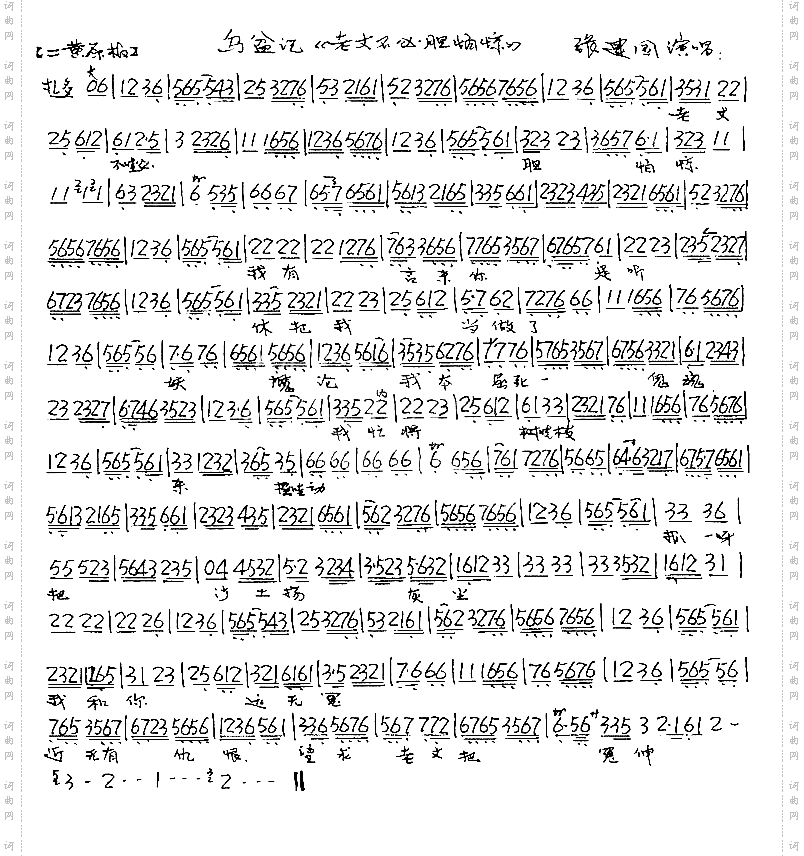 【二黄原板】 乌盆记《老丈不必胆怕惊》 张建国演唱:
06|1236|565543|253276|532161|523276|56567656|1236|565561|3531 22|
老丈
25612|612·5|3 2326|11 1656|12365676|1236|565561|323 23|3657 6·1|323 11|
不必 胆 怕惊
11 11|63 2321|6 535|66 67|657 6561|5613 2165|335 661|2323435|2321 6561|523276|
56567656|1236|565561|22 22|22 1276|763 3656|77653567|6765761|22 23|2352327|
我有 言来你 是听
6723 7656|1236|565561|335 2321|22 23|25612|5·7 62|7276 66|11 1656|765676|
休把我 当做了
1236|56556|7·6 76|6561 5656|1236 5616|35356276|7776|57653567|67563321|612343|
妖 我本 屈死一 鬼魂
23 2327|67463523|123·6|565561|33522|22 23|25612|6133|232176|111656|765676|
我忙将 树枝
1236|565561|33 1232|365 35|66 66|66 66|6 656|761 7276|5665|6463217|67576561|
来 动
5·613 2165|335 661|2323 435|2321 6561|562 3276|5656 7656|1236|565561|33 36|
抓一
55 523|5643 235|04 4532|5·2 3234|3·523 5632|1612 33|33 33|333532|1612 31|
把 沙土扬 灰尘
22 22|22 26|1236|565543|253276|532161|5623276|5656 7656|1236|565561|
2321 165|31 23|25612|3216161|3·5 2321|7·6 66|11 1656|765676|1236|56556|
我和你 远无冤
765 3567|6723 5656|1236561|336 5676|567 772|6765 3567|6·56 335 3 2·161 2-
近无有 仇恨 望求 老丈把 冤伸
3-2--1---2---‖
词曲网